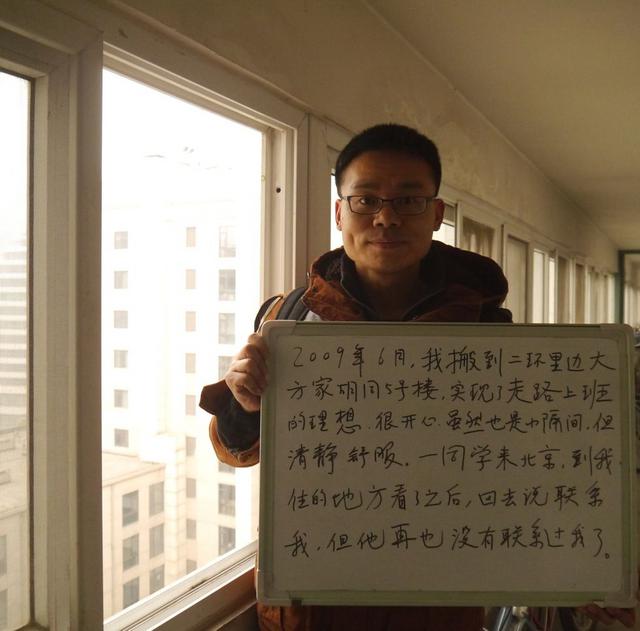 2009年6月,我搬到二环里边大
方家胡同5号楼,实现了走路上班
的理想.很开心.虽然也是小隔间,但
清静舒服.一同学来北京,到我
住的地方看了之后,回去说联系
我,但他再也没有联系过我了。